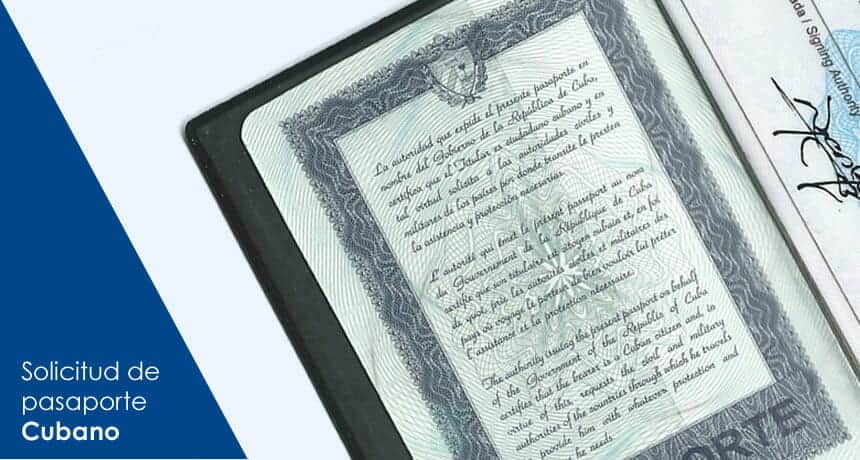 Solicitud de
pasaporte
Cubano
La autoridad que expide el presente pasaporte en
nombre del Gobierno de la República de Cuba,
certifica que el Titular es ciudadano cubano y en
tal virtud solicita a las autoridades civiles y
militares de los países por donde transite le presten
la asistencia y protección necesarias.
L' autorité qui émet le présent passeport au nom
du Gouvernement de la République de Cuba
certifie que son titulaire est citoyen cubain et, en foi
de quoi, prie les autorités civiles et militaires des
pays où voyage le porteur de bien vouloir lui prêter
l'assistance et la protection nécessaire.
The authority issuing the present passport on behalf
of the Government of the Republic of Cuba
certifies that the bearer is a Cuban citizen and, in
virtue of this, requests the civil and military
authorities of the countries through which he travels
provide him with whatever protection and
he needs.
ORTE
/ Signing Authority